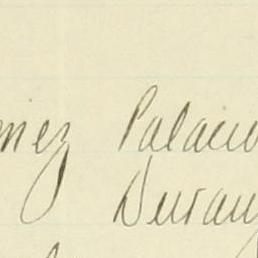 mez Palacio
Durang